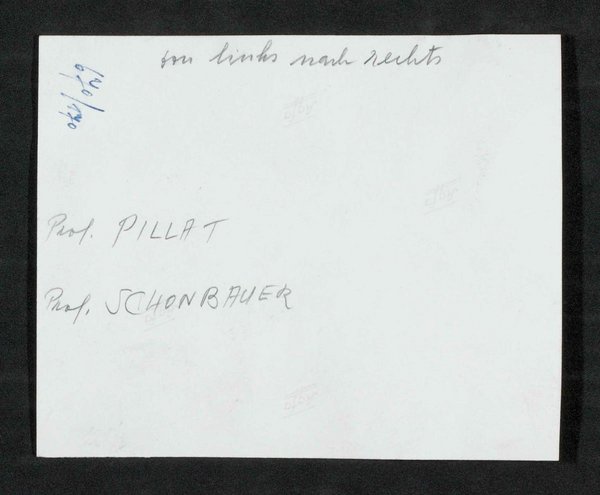 von links nach rechts
Prof. PILLAT
Prof. SCHONBAUER